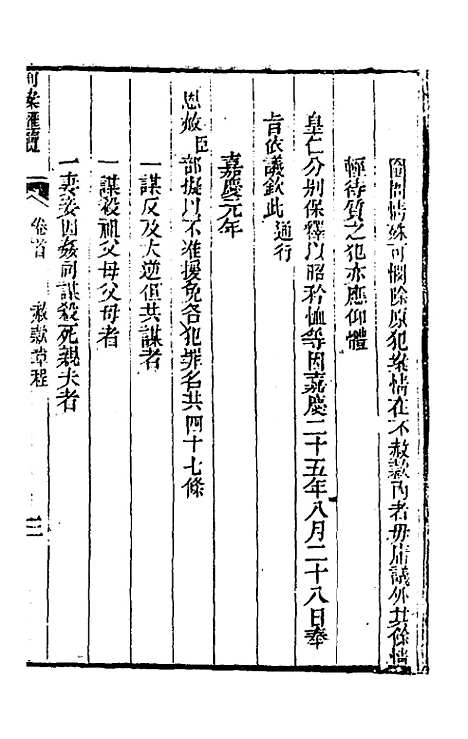 囹圄情殊可憫除原犯案情在不赦款內者毋庸議外其餘情
輕待質之犯亦應仰體
皇仁分別保釋以昭矜恤等因嘉慶二十五年八月二十八日奉
旨依議欽此通行
嘉慶元年
恩赦臣部擬以不准援免各犯罪名共四十七條
一謀反及大逆但共謀者
一謀殺祖父母父母者
一妻妾因姦同謀殺死親夫者
刑案匯覽 卷首 赦款章程 二